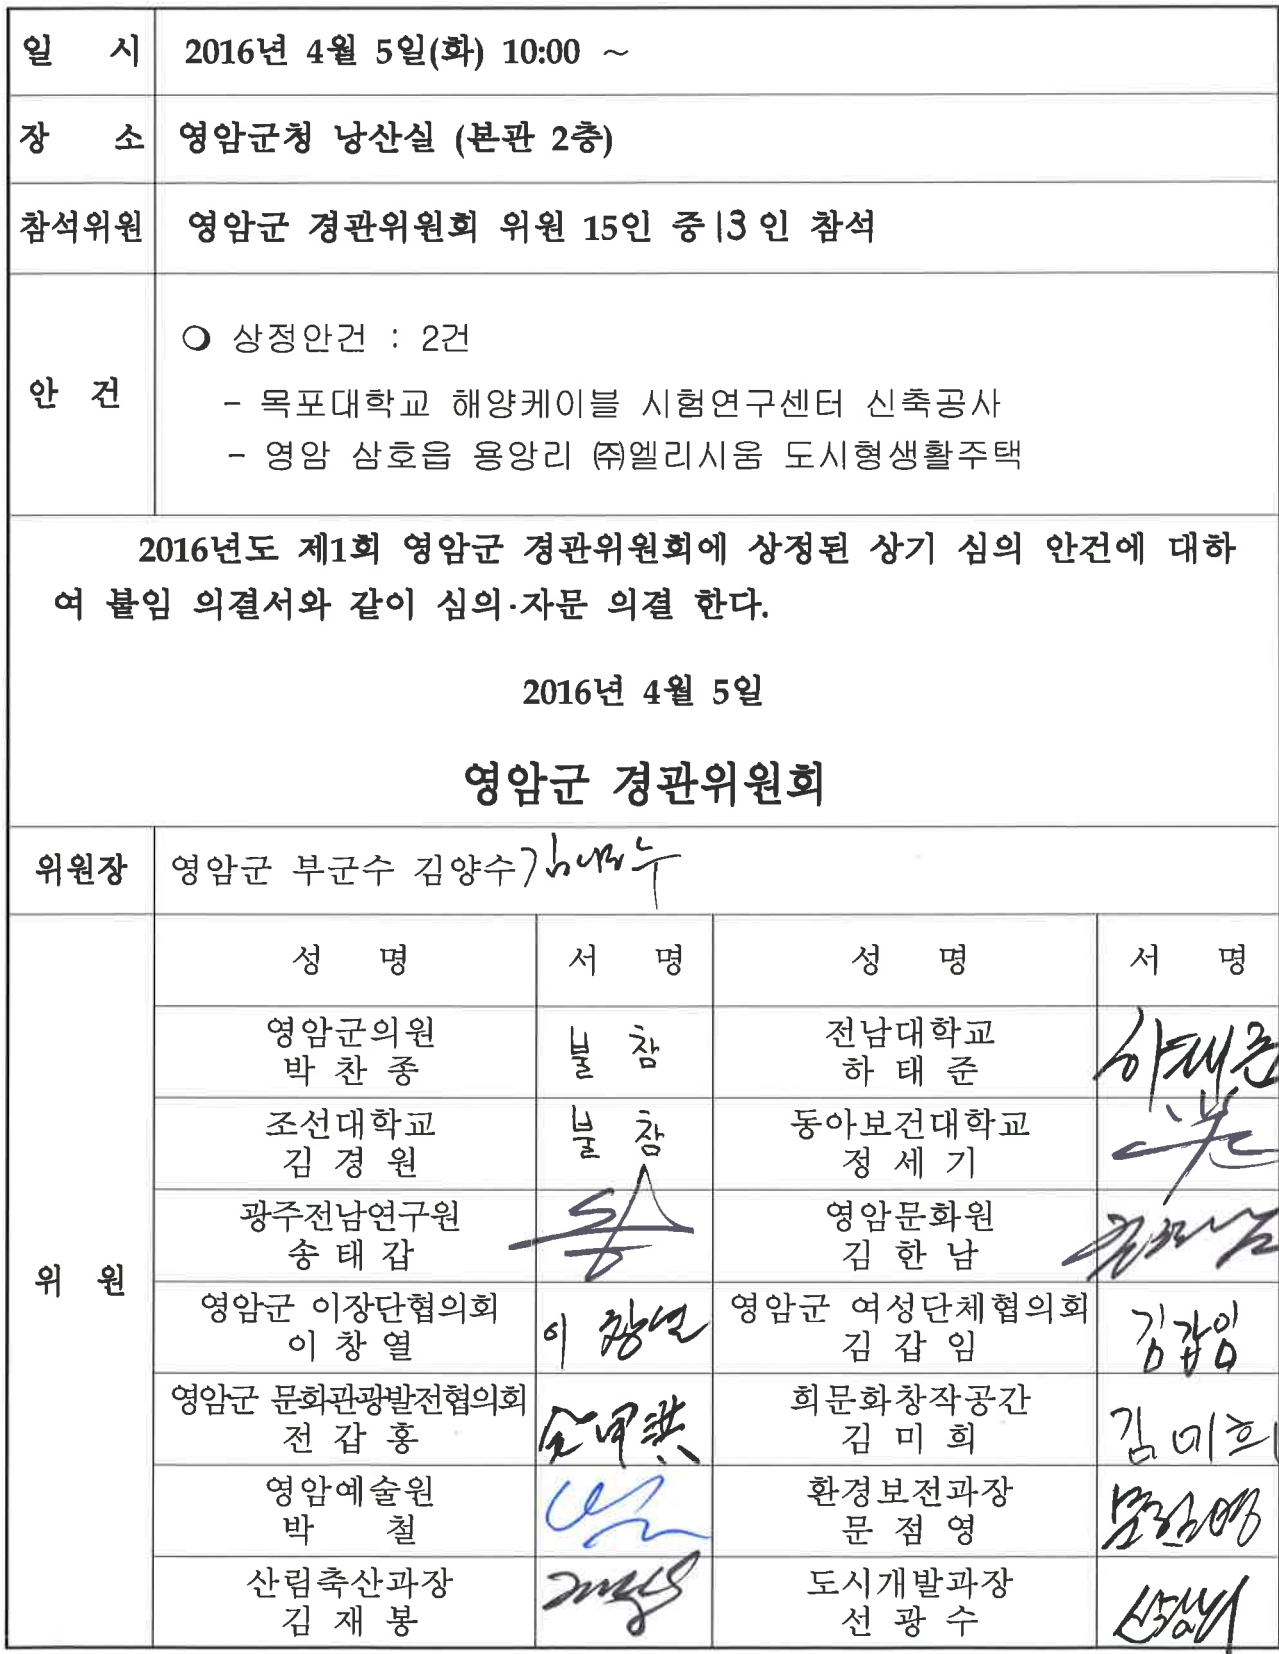 일 시 2016년 4월 5일(화) 10:00 ~
장 소 영암군청 낭산실 (본관 2층)
참석위원 영암군 경관위원회 위원 15인 중 13인 참석
안 건
○ 상정안건 : 2건
- 목포대학교 해양케이블 시험연구센터 신축공사
- 영암 삼호읍 용앙리 ㈜엘리시움 도시형생활주택
2016년도 제1회 영암군 경관위원회에 상정된 상기 심의 안건에 대하
여 붙임 의결서와 같이 심의·자문 의결 한다.
2016년 4월 5일
영암군 경관위원회
위원장 영암군 부군수 김양수
위 원
성 명 서 명 성 명 서 명
영암군의원 전남대학교
박 찬 종 불 참 하 태 준 하태준
조선대학교 동아보건대학교
김 경 원 불 참 정 세 기
광주전남연구원 영암문화원
송 태 갑 김 한 남
영암군 이장단협의회 영암군 여성단체협의회
이 창 열 이 창열 김 갑 임 김갑임
영암군 문화관광발전협의회 희문화창작공간
전 갑 홍 김 미 희 김미희
영암예술원 환경보전과장
박 철 문 점 영
산림축산과장 도시개발과장
김 재 봉 선 광 수